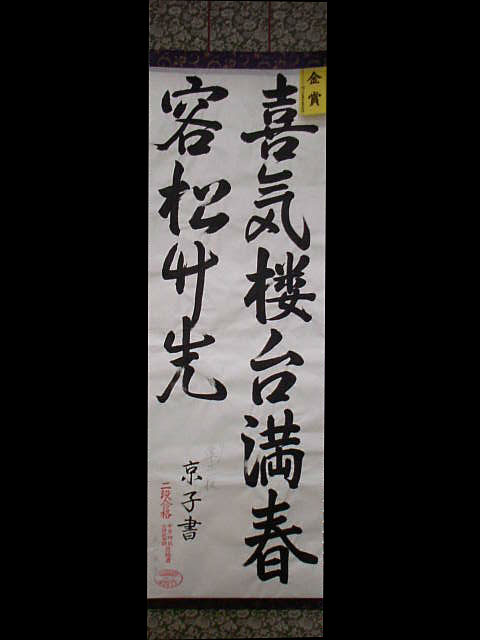 金賞
喜気楼台満春
容松竹先
京子書
二段合格